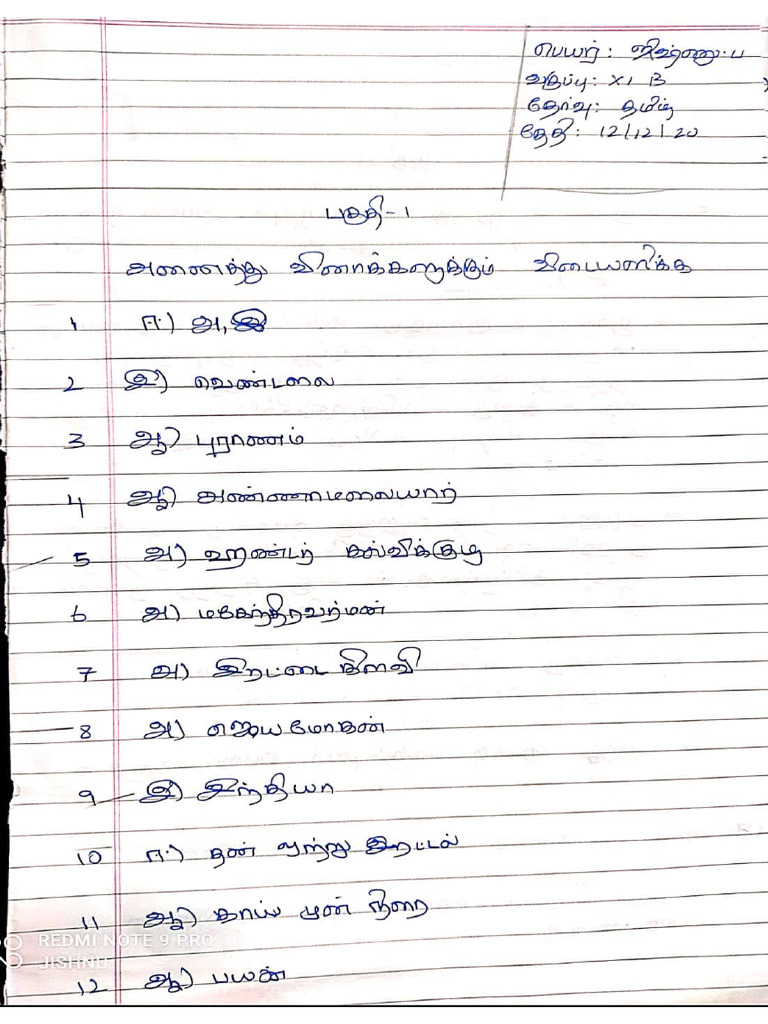 பெயர் : ஜிஷ்ணு . ப
வகுப்பு : XI B
தேர்வு : தமிழ்
தேதி : 12/12/20
பகுதி - 1
அனைத்து வினாக்களுக்கும் விடையளிக்க
1 ஈ) அ, இ
2 இ) வெண்டலை
3 ஆ) புராணம்
4 ஆ) அண்ணாமலையார்
5 அ) ஹண்டர் கல்விக்குழு
6 அ) மகேந்திரவர்மன்
7 அ) இரட்டை கிளவி
8 அ) ஜெயமோகன்
9 இ) இந்தியா
10 ஈ) தன் ஒற்று இரட்டல்
11 ஆ) தாய் முன் நிரை
12 ஆ) பயன்
REDMI NOTE 9 PRO
JISHNU